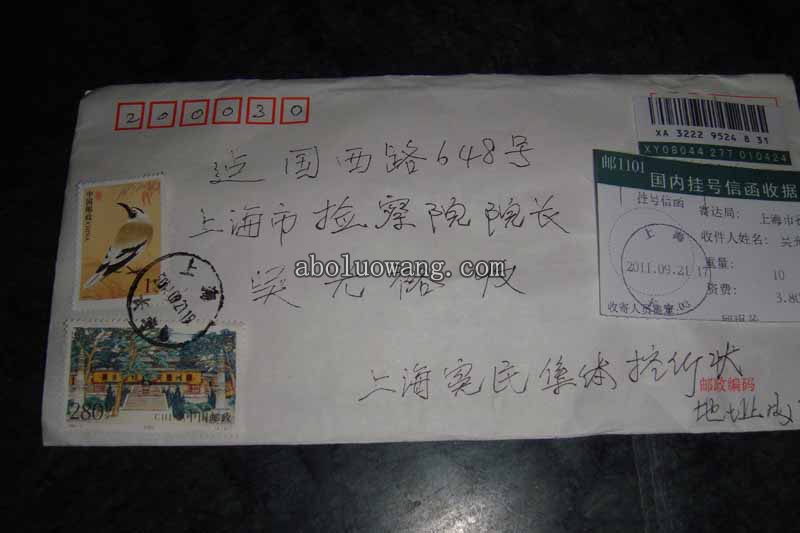 200030
XA 3222 9524 8 31
XY08044 277 010424
建国西路648号
上海市检察院院长
吴光裕 收
上海冤民集体控
状
邮政编码
地址
邮1101 国内挂号信函收据
挂号信函 寄达局: 上海市
收件人姓名:
重量: 10
资费: 3.80
上海
2011.09.21 17
收寄人员
中国邮政
CHINA
上海
280分
CHINA 中国邮政
aboluowang.com